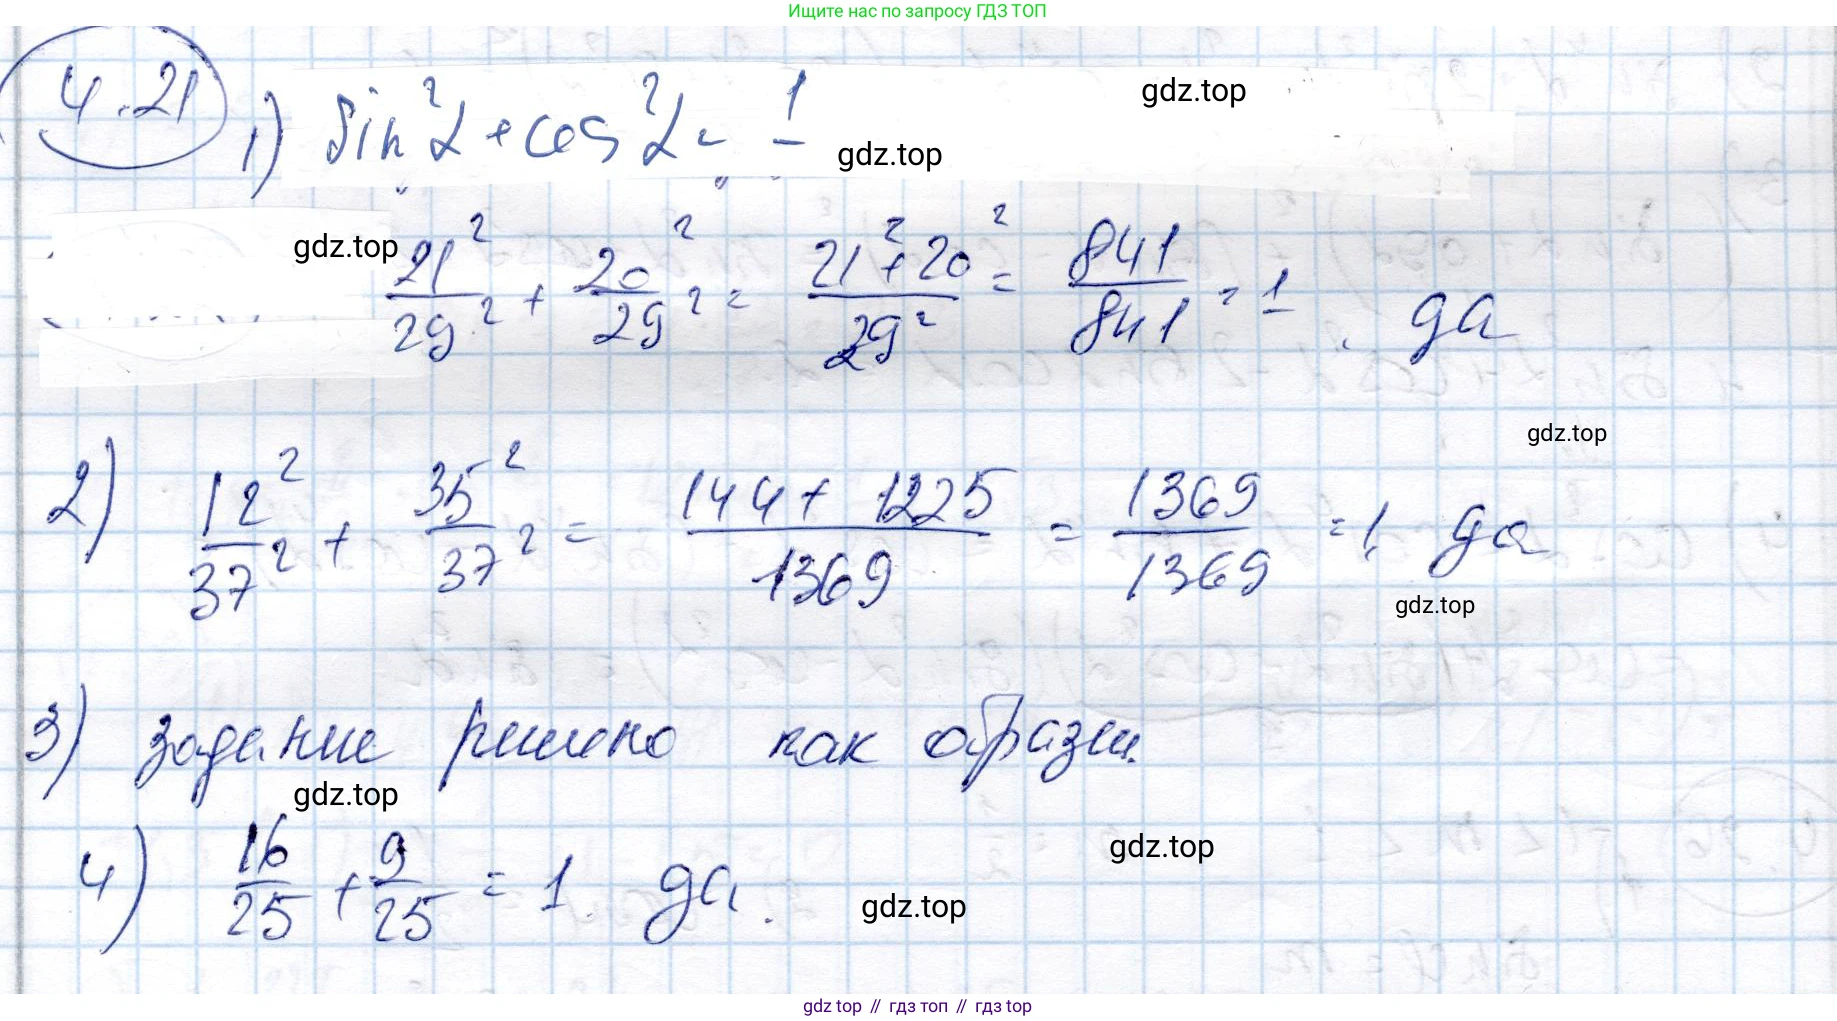 Ищите нас по запросу ГДЗ ТОП
4.21
1) sin²α + cos²α = 1
gdz.top
gdz.top
gdz.top
21²/29² + 20²/29² = 21² + 20²/29² = 841/841 = 1. да
gdz.top
2) 12²/37² + 35²/37² = 144 + 1225/1369 = 1369/1369 = 1. да
gdz.top
3) задание решено как образец.
gdz.top
gdz.top
4) 16/25 + 9/25 = 1. да.
gdz.top
gdz top // гдз топ // гдз top